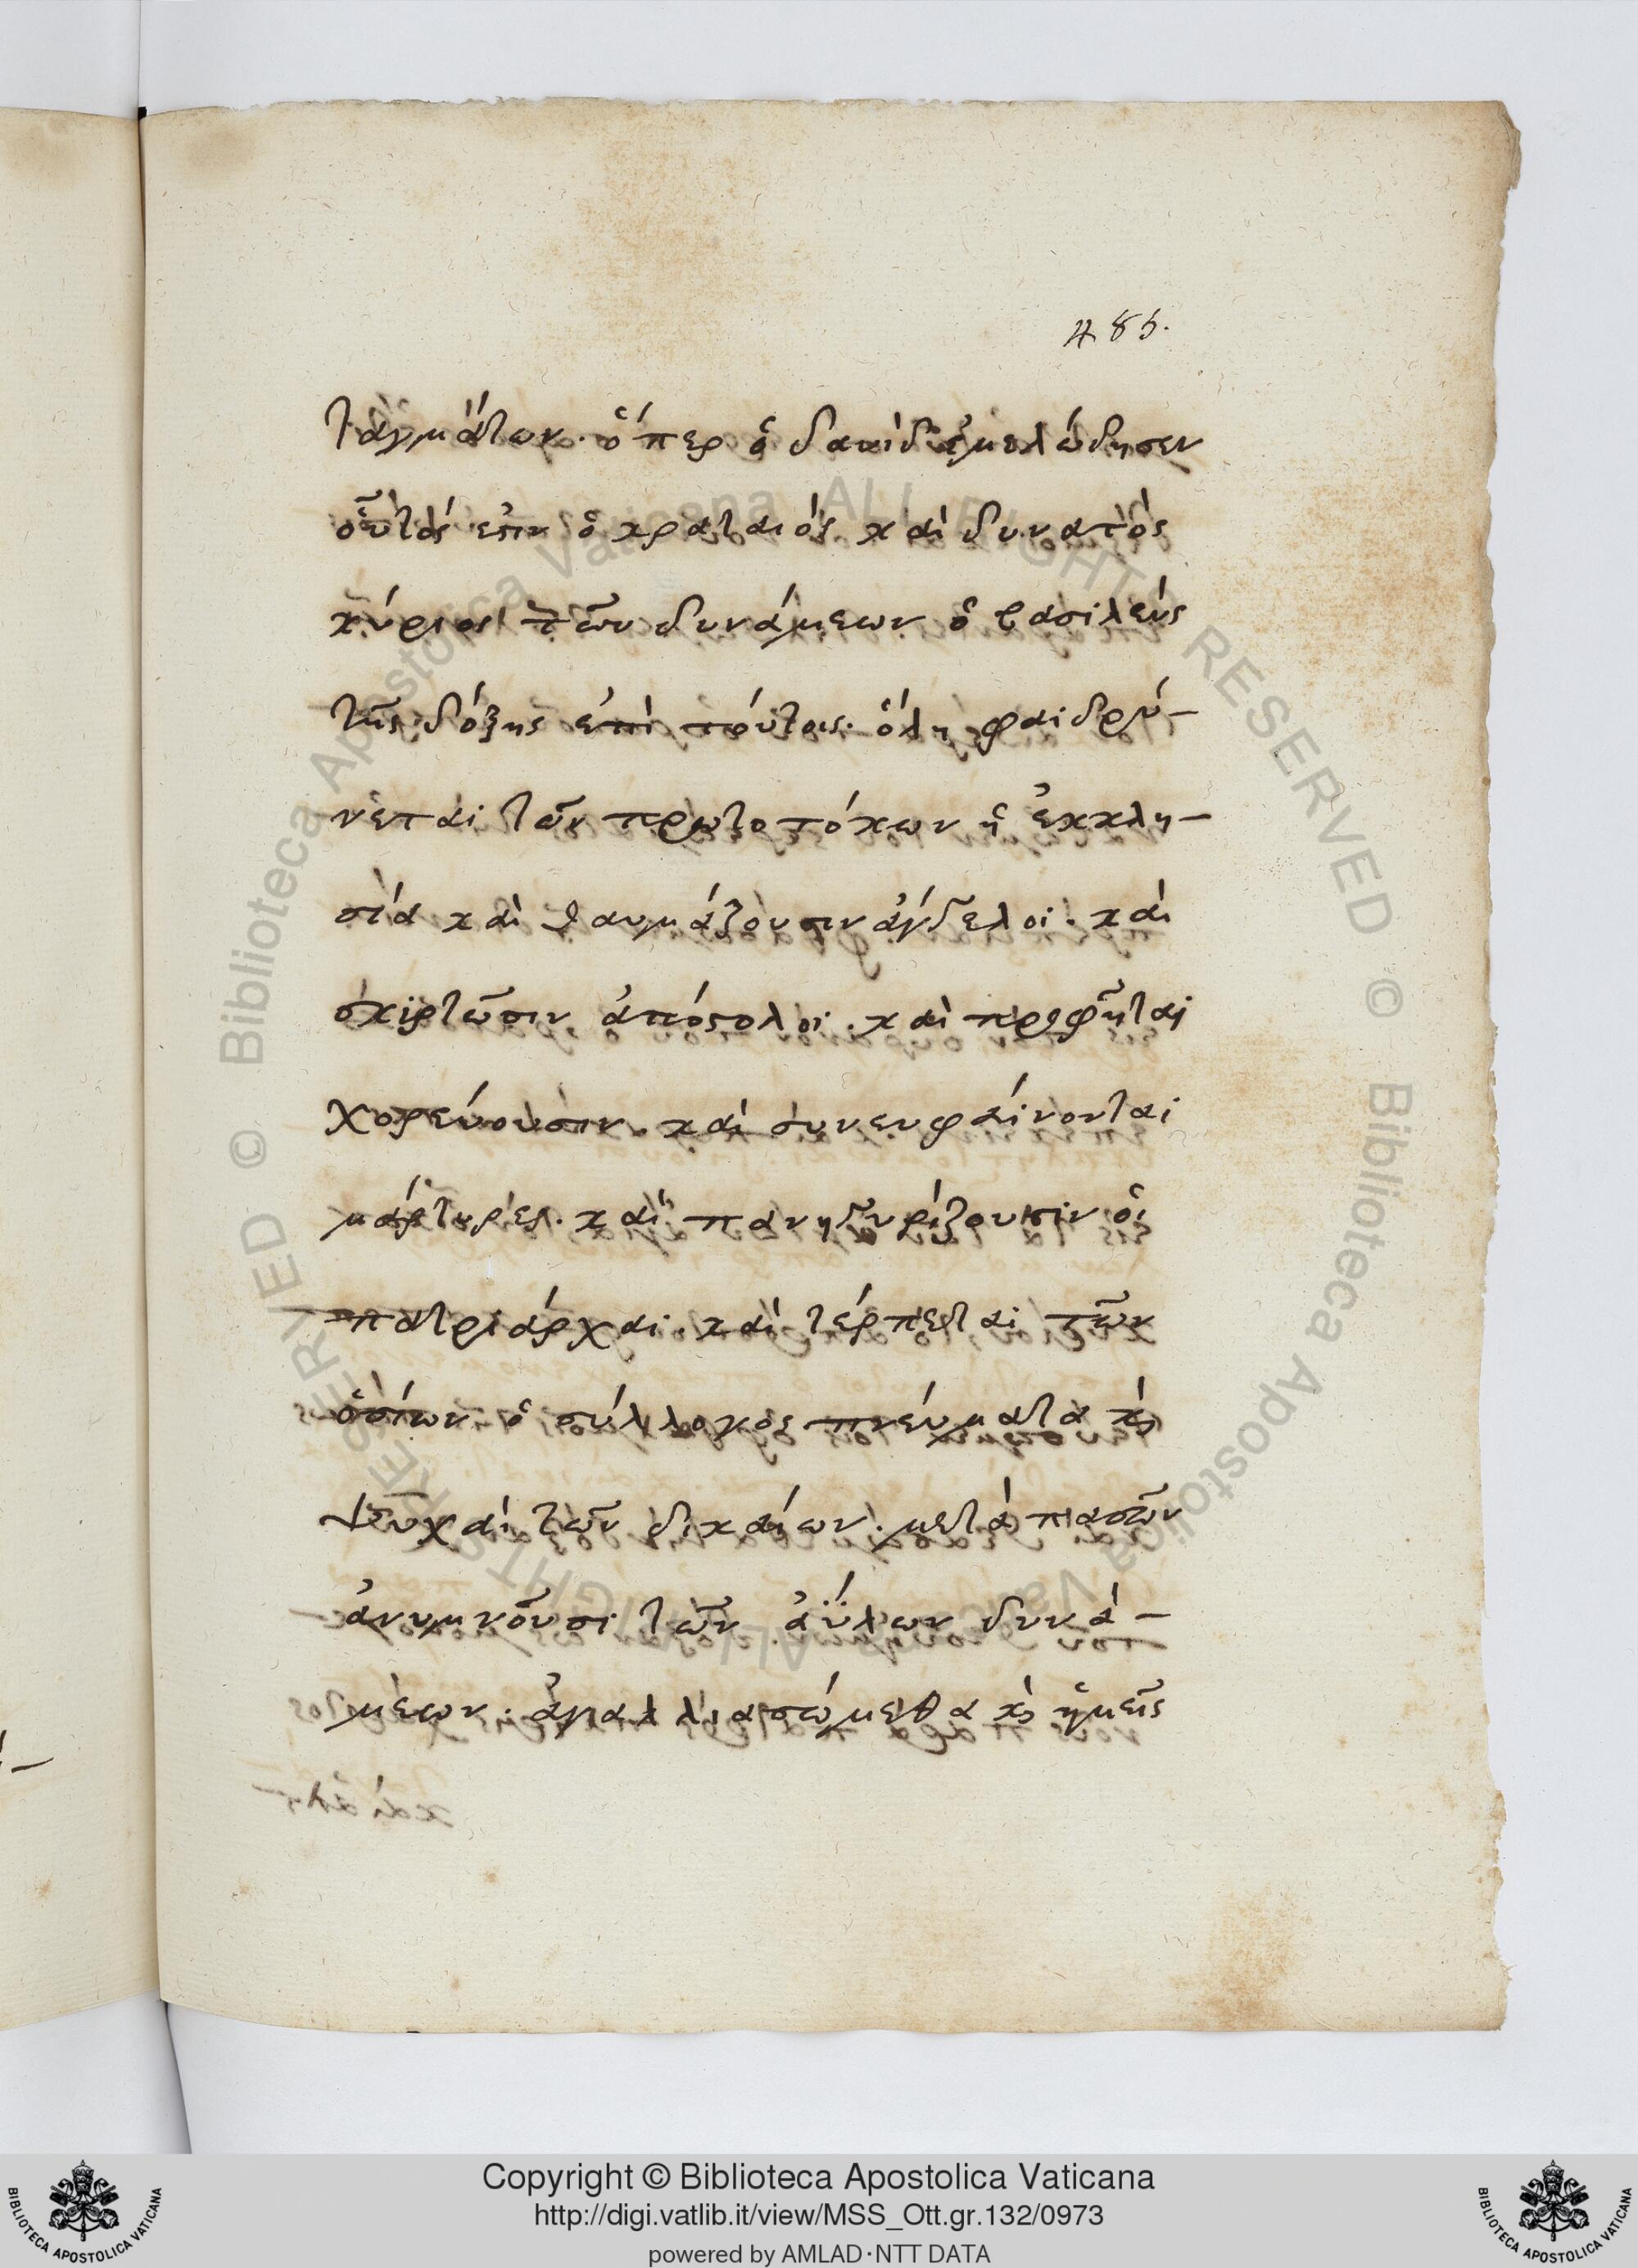 485.
ταγμάτων. ὅπερ ὁ δαυὶδ ἐμελώδησεν
οὗτός ἐστιν ὁ κραταιός καὶ δυνατὸς
κύριος τῶν δυνάμεων ὁ βασιλεὺς
τῆς δόξης ἐπὶ τούτοις. ὅλη φαιδρύ-
νεται τῶν πρωτοτόκων ἡ ἐκκλη-
σία καὶ θαυμάζουσιν ἄγγελοι. καὶ
σκιρτῶσιν ἀπόστολοι. καὶ προφῆται
χορεύουσιν. καὶ συνευφραίνονται
μάρτυρες. καὶ πανηγυρίζουσιν οἱ
πατριάρχαι. καὶ τέρπεται τῶν
ὁσίων ὁ σύλλογος πνεύματα καὶ
ψυχαὶ τῶν δικαίων. μετὰ πασῶν
ἀνυμνοῦσι τῶν ἀΰλων δυνά-
μεων. ἀγαλλιασώμεθα καὶ ἡμεῖς
Copyright © Biblioteca Apostolica Vaticana
http://digi.vatlib.it/view/MSS_Ott.gr.132/0973
powered by AMLAD·NTT DATA
BIBLIOTECA APOSTOLICA VATICANA
BIBLIOTECA APOSTOLICA VATICANA
Biblioteca Apostolica Vaticana ALL RIGHT RESERVED ©
Biblioteca Apostolica Vaticana ALL RIGHT RESERVED ©